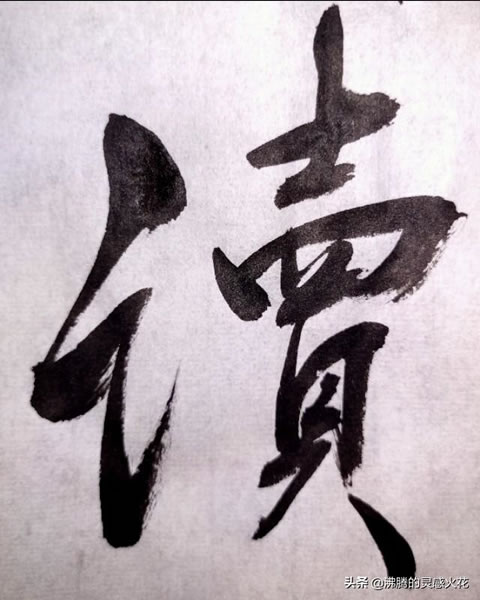 讀
头条 @沸腾的灵感火花